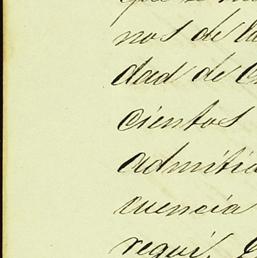 nos de la
dad de C
cientos
admitia
cuencia
requi.